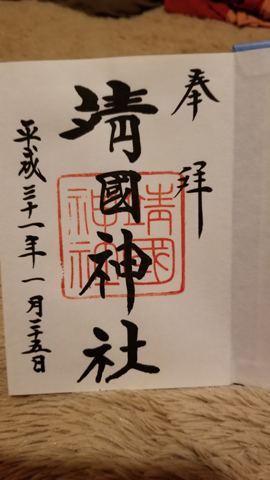 奉拝
靖國神社
平成三十一年一月二十五日
靖國
神社